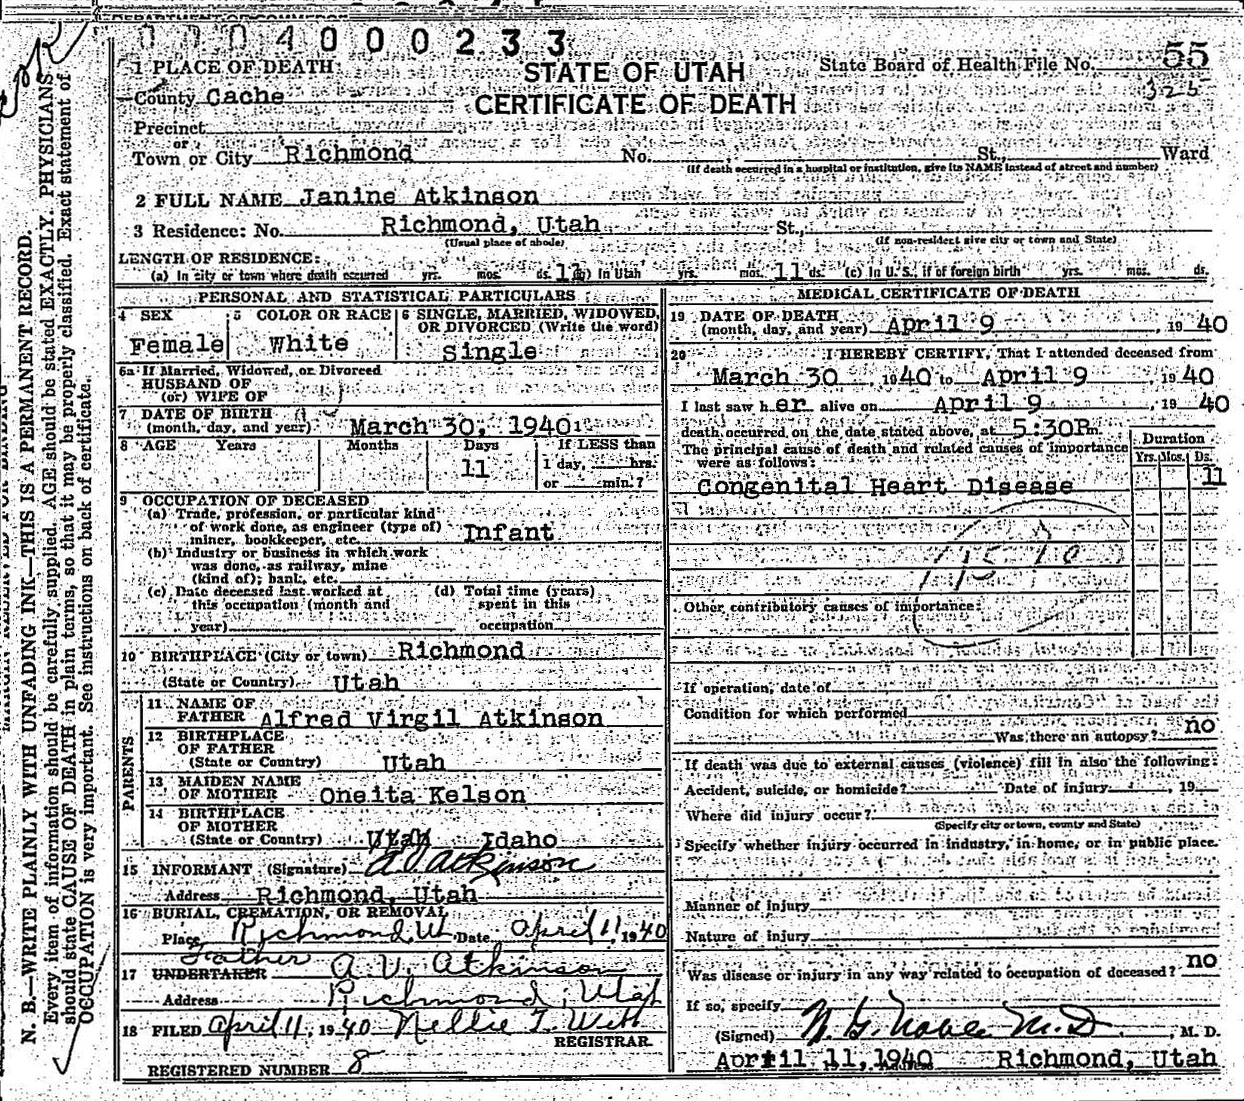 0004000233
STATE OF UTAH
CERTIFICATE OF DEATH
State Board of Health File No. 55
325
1 PLACE OF DEATH
County Cache
Precinct
or
Town or City Richmond No. St., Ward
(If death occurred in a hospital or institution, give its NAME instead of street and number)
2 FULL NAME Janine Atkinson
3 Residence: No. Richmond, Utah St.,
(Usual place of abode) (If non-resident give city or town and State)
LENGTH OF RESIDENCE:
(a) In city or town where death occurred yrs. mos. ds. 11 (b) In Utah yrs. mos. 11 ds. (c) In U. S., if of foreign birth yrs. mos. ds.
PERSONAL AND STATISTICAL PARTICULARS
4 SEX
Female
5 COLOR OR RACE
White
6 SINGLE, MARRIED, WIDOWED, OR DIVORCED (Write the word)
Single
6a If Married, Widowed, or Divorced
HUSBAND OF
(or) WIFE OF
7 DATE OF BIRTH
(month, day, and year) March 30, 1940
8 AGE Years Months Days If LESS than
11 1 day, hrs.
or min.?
9 OCCUPATION OF DECEASED
(a) Trade, profession, or particular kind
of work done, as engineer (type of)
miner, bookkeeper, etc. Infant
(b) Industry or business in which work
was done, as railway, mine
(kind of); bank, etc.
(c) Date deceased last worked at
this occupation (month and
year)
(d) Total time (years)
spent in this
occupation
10 BIRTHPLACE (City or town) Richmond
(State or Country) Utah
PARENTS
11 NAME OF
FATHER Alfred Virgil Atkinson
12 BIRTHPLACE
OF FATHER
(State or Country) Utah
13 MAIDEN NAME
OF MOTHER Oneita Kelson
14 BIRTHPLACE
OF MOTHER
(State or Country) Utah Idaho
15 INFORMANT (Signature) A.V. Atkinson
Address Richmond, Utah
16 BURIAL, CREMATION, OR REMOVAL
Place Richmond, Ut Date April 11, 1940
Father
17 UNDERTAKER A. V. Atkinson
Address Richmond, Utah
18 FILED April 11, 1940 Nellie T. Webb
REGISTRAR.
REGISTERED NUMBER 8
MEDICAL CERTIFICATE OF DEATH
19 DATE OF DEATH
(month, day, and year) April 9, 1940
20 I HEREBY CERTIFY, That I attended deceased from
March 30, 1940 to April 9, 1940
I last saw her alive on April 9, 1940
death occurred on the date stated above, at 5:30P m.
The principal cause of death and related causes of importance
were as follows:
Duration
Yrs. Mos. Ds.
11
Congenital Heart Disease
Other contributory causes of importance:
If operation, date of
Condition for which performed
Was there an autopsy? no
If death was due to external causes (violence) fill in also the following:
Accident, suicide, or homicide? Date of injury , 19
Where did injury occur?
(Specify city or town, county and State)
Specify whether injury occurred in industry, in home, or in public place.
Manner of injury
Nature of injury
Was disease or injury in any way related to occupation of deceased? no
If so, specify
(Signed) M.D., M. D.
April 11, 1940 Richmond, Utah
N. B.—WRITE PLAINLY WITH UNFADING INK—THIS IS A PERMANENT RECORD.
Every item of information should be carefully supplied. AGE should be stated EXACTLY. PHYSICIANS
should state CAUSE OF DEATH in plain terms, so that it may be properly classified. Exact statement of
OCCUPATION is very important. See instructions on back of certificate.